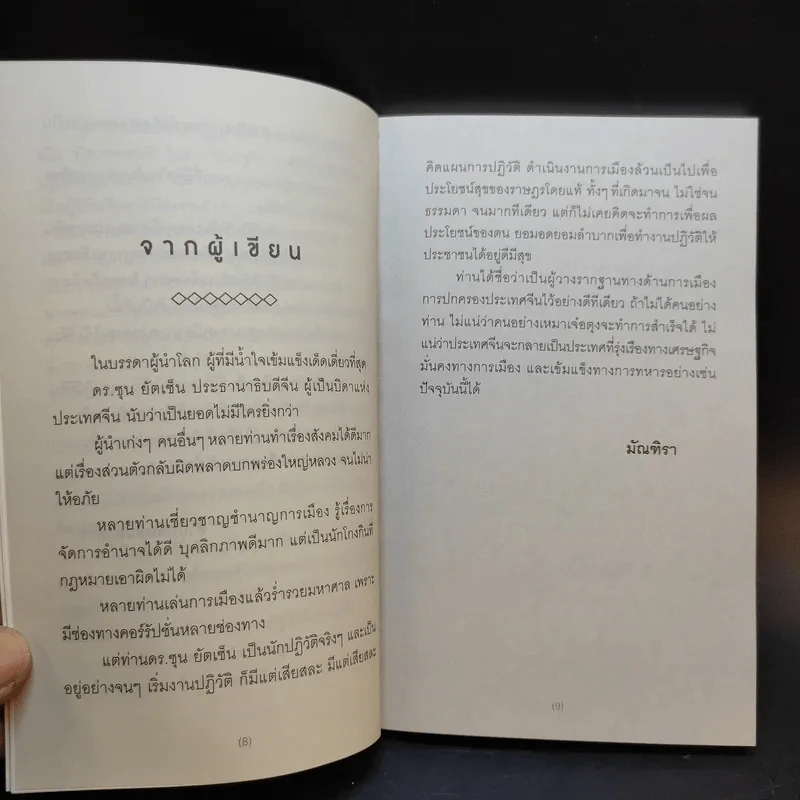 จากผู้เขียน
ในบรรดาผู้นำโลก ผู้ที่มีน้ำใจเข้มแข็งเด็ดเดี่ยวที่สุด
ดร.ซุน ยัตเซ็น ประธานาธิบดีจีน ผู้เป็นบิดาแห่ง
ประเทศจีน นับว่าเป็นยอดไม่มีใครยิ่งกว่า
ผู้นำเก่งๆ คนอื่นๆ หลายท่านทำเรื่องสังคมได้ดีมาก
แต่เรื่องส่วนตัวกลับผิดพลาดบกพร่องใหญ่หลวง จนไม่น่า
ให้อภัย
หลายท่านเชี่ยวชาญชำนาญการเมือง รู้เรื่องการ
จัดการอำนาจได้ดี บุคลิกภาพดีมาก แต่เป็นนักโกงกินที่
กฎหมายเอาผิดไม่ได้
หลายท่านเล่นการเมืองแล้วร่ำรวยมหาศาล เพราะ
มีช่องทางคอร์รัปชั่นหลายช่องทาง
แต่ท่านดร.ซุน ยัตเซ็น เป็นนักปฏิวัติจริงๆ และเป็น
อยู่อย่างจนๆ เริ่มงานปฏิวัติ ก็มีแต่เสียสละ มีแต่เสียสละ
(8)
คิดแผนการปฏิวัติ ดำเนินงานการเมืองล้วนเป็นไปเพื่อ
ประโยชน์สุขของราษฎรโดยแท้ ทั้งๆ ที่เกิดมาจน ไม่ใช่จน
ธรรมดา จนมากทีเดียว แต่ก็ไม่เคยคิดจะทำการเพื่อผล
ประโยชน์ของตน ยอมอดยอมลำบากเพื่อทำงานปฏิวัติให้
ประชาชนได้อยู่ดีมีสุข
ท่านได้ชื่อว่าเป็นผู้วางรากฐานทางด้านการเมือง
การปกครองประเทศจีนไว้อย่างดีทีเดียว ถ้าไม่ได้คนอย่าง
ท่าน ไม่แน่ว่าคนอย่างเหมาเจ๋อตุงจะทำการสำเร็จได้ ไม่
แน่ว่าประเทศจีนจะกลายเป็นประเทศที่รุ่งเรืองทางเศรษฐกิจ
มั่นคงทางการเมือง และเข้มแข็งทางการทหารอย่างเช่น
ปัจจุบันนี้ได้
มัณฑิรา
(9)